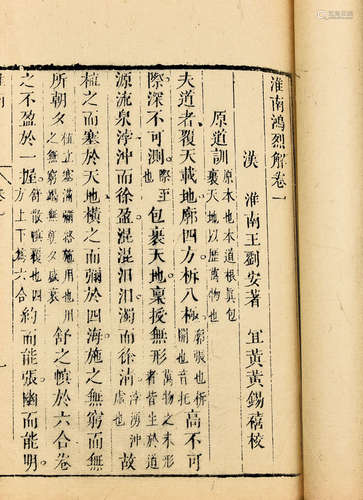 淮南鴻烈解卷一
漢 淮南王劉安著 宜黃黃錫禧校
原道訓 原本也本道根真包裹天地以歷萬物也
夫道者覆天載地廓四方柝八極 廓張也柝開也 高不可
際深不可測 際至也 包裹天地稟授無形 萬物之未形者皆生於道
源流泉浡沖而徐盈混混汩汩濁而徐清 浡湧沖虛也 故
植之而塞於天地橫之而彌於四海施之無窮而無
所朝夕 植立塞滿彌絡施用也用之無窮竭無朝夕盛衰 舒之幎於六合卷
之不盈於一握 舒散幎覆也四方上下為六合 約而能張幽而能明